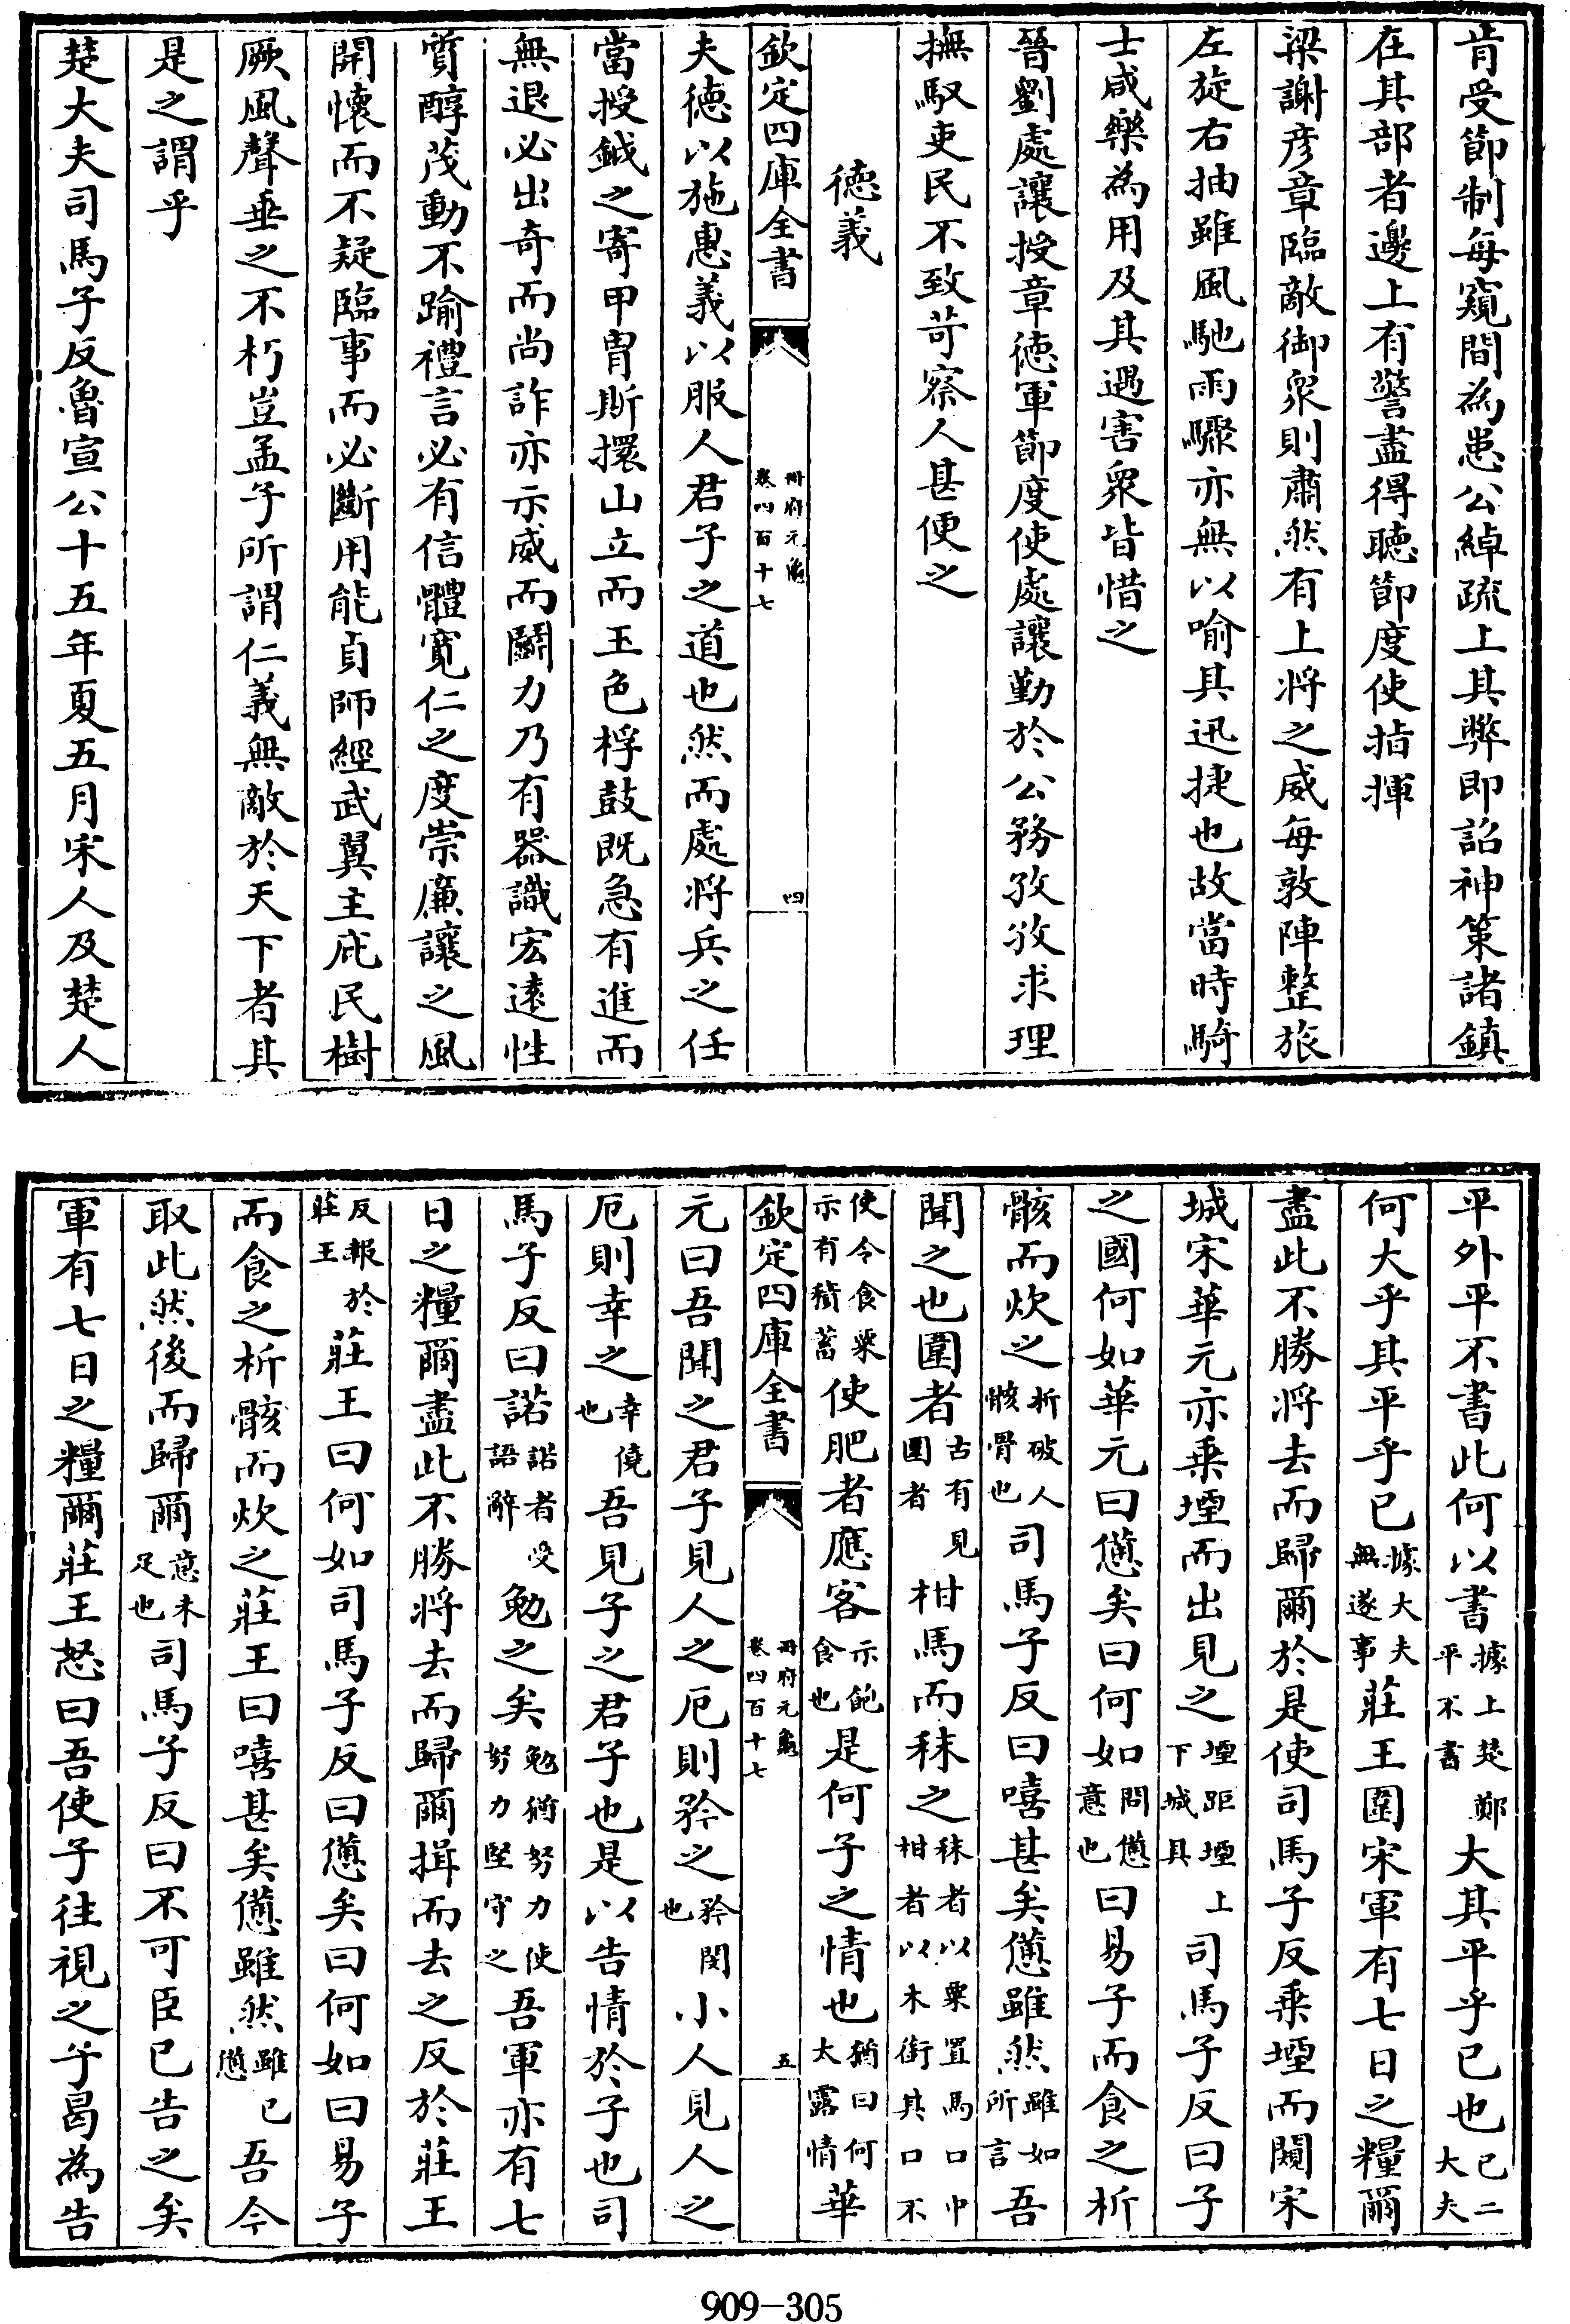 肯受節制每窺間為患公綽疏上其弊即詔神策諸鎮
在其部者邊上有警盡得聽節度使指揮
梁謝彦章臨敵御衆則肅然有上將之威每敦陣整旅
左旋右抽雖風馳雨驟亦無以喻其迅捷也故當時騎
士咸樂為用及其遇害衆皆惜之
晉劉處讓授章徳軍節度使處讓勤於公務孜孜求理
撫馭吏民不致苛察人甚便之
徳義
欽定四庫全書 冊府元龜 卷四百十七 四
夫徳以施惠義以服人君子之道也然而處將兵之任
當授鉞之寄甲胄斯擐山立而玉色桴鼓既急有進而
無退必出奇而尚詐亦示威而鬬力乃有器識宏逺性
質醇茂動不踰禮言必有信體寛仁之度崇廉讓之風
開懷而不疑臨事而必斷用能貞師經武翼主庇民樹
厥風聲垂之不朽豈孟子所謂仁義無敵於天下者其
是之謂乎
楚大夫司馬子反魯宣公十五年夏五月宋人及楚人
平外平不書此何以書據上楚鄭平不書大其平乎已也已二大夫
何大乎其平乎已據大夫無遂事莊王圍宋軍有七日之糧爾
盡此不勝將去而歸爾於是使司馬子反乗堙而闚宋
城宋華元亦乗堙而出見之堙距堙上下城具司馬子反曰子
之國何如華元曰憊矣曰何如問憊意也曰易子而食之析
骸而炊之析破人骸骨也司馬子反曰嘻甚矣憊雖然雖如所言吾
聞之也圍者古有見圍者柑馬而秣之秣者以粟置馬口中柑者以木銜其口不
使令食粟示有積蓄使肥者應客示飽食也是何子之情也猶曰何太露情華
欽定四庫全書 冊府元龜 卷四百十七 五
元曰吾聞之君子見人之厄則矜之矜閔也小人見人之
厄則幸之幸僥也吾見子之君子也是以告情於子也司
馬子反曰諾諾者受語辭勉之矣勉猶努力使努力堅守之吾軍亦有七
日之糧爾盡此不勝將去而歸爾揖而去之反於莊王
反報於莊王莊王曰何如司馬子反曰憊矣曰何如曰易子
而食之析骸而炊之莊王曰嘻甚矣憊雖然雖已憊吾今
取此然後而歸爾意未足也司馬子反曰不可臣已告之矣
軍有七日之糧爾莊王怒曰吾使子往視之子曷為告
909-305